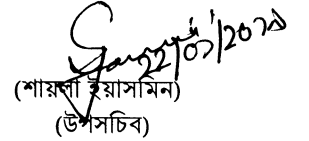 22/01/2019
(শায়লা ইয়াসমিন)
(উপসচিব)